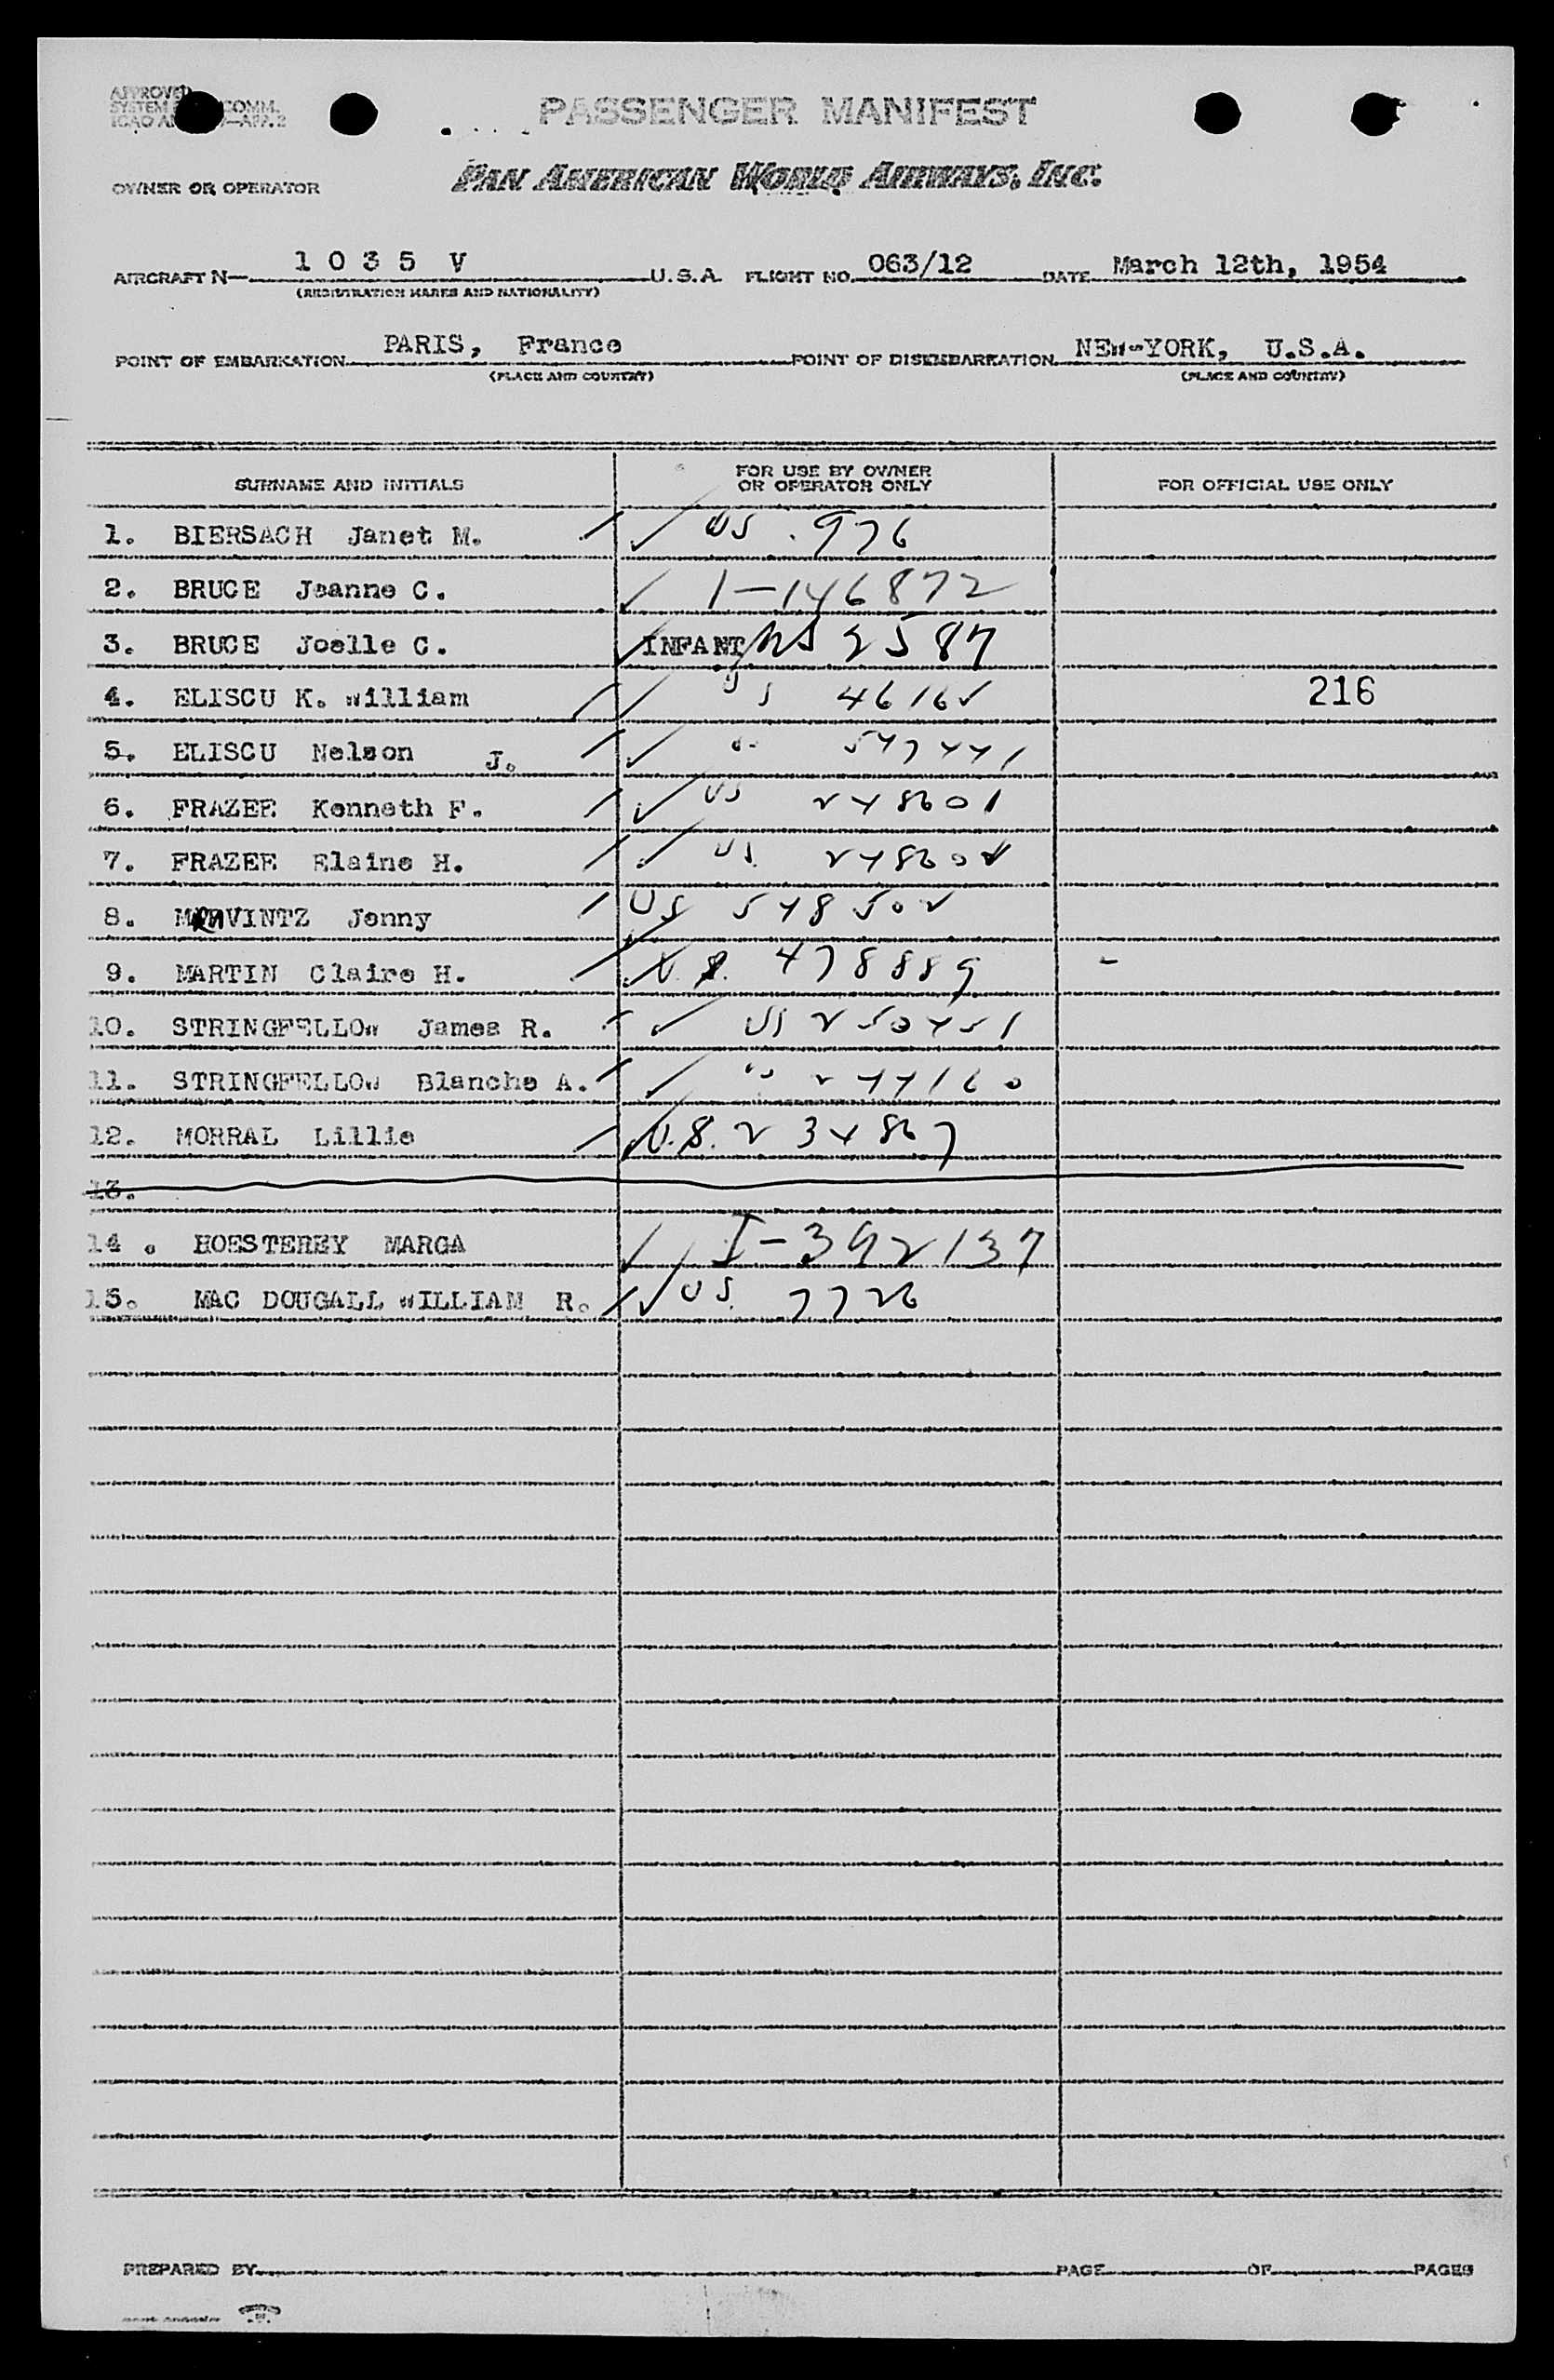 APPROVED
SYSTEM COMM.
ICAO
PASSENGER MANIFEST
OWNER OR OPERATOR
PAN AMERICAN WORLD AIRWAYS, INC.
AIRCRAFT N— 1 0 3 5 V U.S.A. FLIGHT NO. 063/12 DATE March 12th, 1954
(REGISTRATION MARKS AND NATIONALITY)
POINT OF EMBARKATION PARIS, France POINT OF DISEMBARKATION NEW-YORK, U.S.A.
(PLACE AND COUNTRY) (PLACE AND COUNTRY)
SURNAME AND INITIALS FOR USE BY OWNER OR OPERATOR ONLY FOR OFFICIAL USE ONLY
1. BIERSACH Janet M. US 976
2. BRUCE Jeanne C. 1-146872
3. BRUCE Joelle C. INFANT US 2587
4. ELISCU K. William US 46162 216
5. ELISCU Nelson J. 547441
6. FRAZEE Kenneth F. US 248601
7. FRAZEE Elaine H. US 248602
8. VINTZ Jenny US 548502
9. MARTIN Claire H. U.S. 478889 -
10. STRINGFELLOW James R. US 250451
11. STRINGFELLOW Blanche A. US 244160
12. MORRAL Lillie U.S. 234867
13.
14. HOESTEREY MARGA I-392137
15. MAC DOUGALL WILLIAM R. US 7726
PREPARED BY PAGE OF PAGES